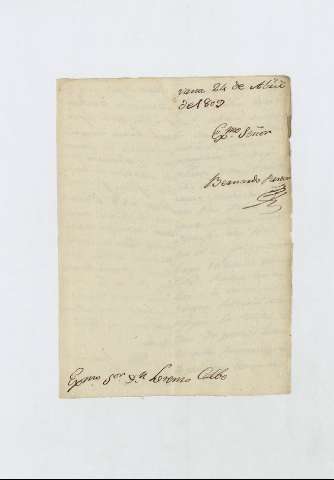 24 de Abril
de 1809
Exmo. Señor
Bernardo
Exmo Sor Dn Lorenzo Calbo